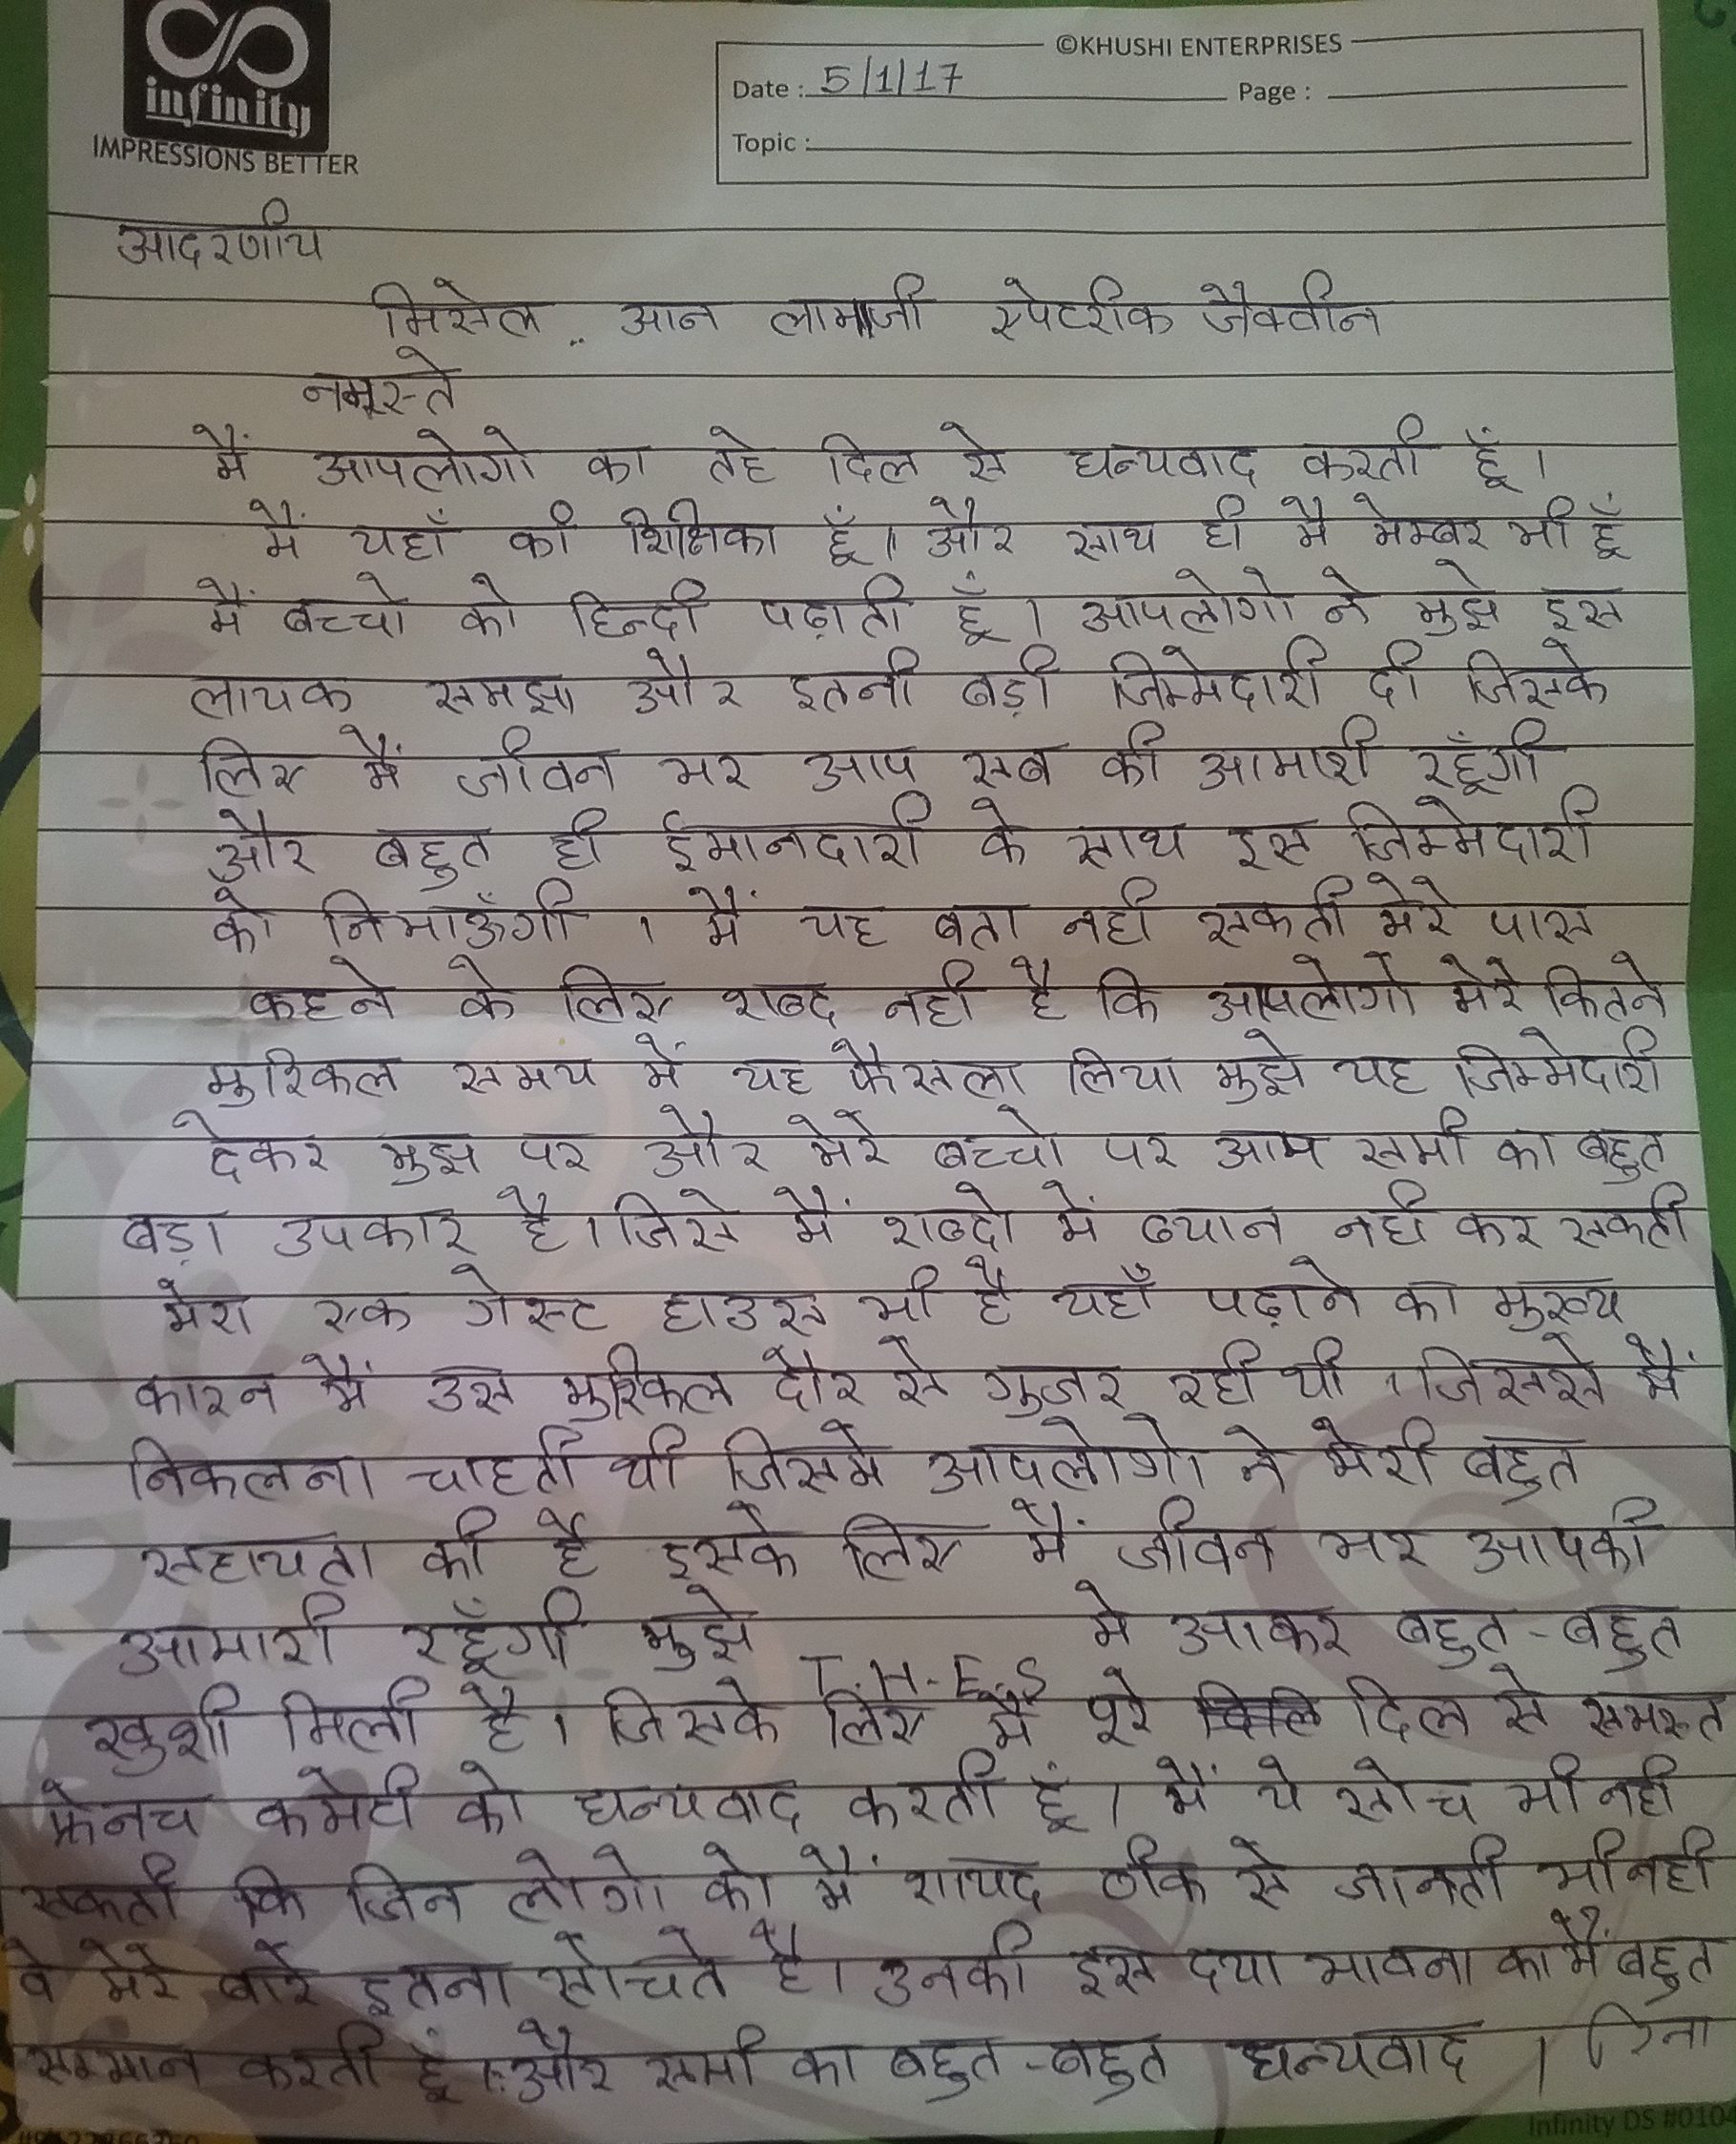 infinity
IMPRESSIONS BETTER
©KHUSHI ENTERPRISES
Date : 5/1/17 Page :
Topic :
आदरणीय
मिसेल .. आन लामाजी स्पेटरीक जैक्लीन
नमस्ते
मैं आपलोगो का तहे दिल से धन्यवाद करती हूँ ।
मैं यहाँ की शिक्षिका हूँ। और साथ ही मै मेम्बर भी हूँ
मैं बच्चो को हिन्दी पढ़ाती हूँ । आपलोगो ने मुझे इस
लायक समझा और इतनी बड़ी जिम्मेदारी दी जिसके
लिए मैं जीवन भर आप सब की आभारी रहूँगी
और बहुत ही ईमानदारी के साथ इस जिम्मेदारी
को निभाऊँगी । मैं यह बता नही सकती मेरे पास
कहने के लिए शब्द नही है कि आपलोगो मेरे कितने
मुश्किल समय में यह फैसला लिया मुझे यह जिम्मेदारी
देकर मुझ पर और मेरे बच्चो पर आप सभी का बहुत
बड़ा उपकार है । जिसे मैं शब्दो में ब्यान नही कर सकती
मेरा एक गेस्ट हाउस भी है यहाँ पढ़ाने का मुख्य
कारन मैं उस मुश्किल दौर से गुजर रही थी । जिससे मैं
निकलना चाहती थी जिसमे आपलोगो ने मेरी बहुत
सहायता की है इसके लिए मैं जीवन भर आपकी
आभारी रहूँगी मुझे T.H.E.S मे आकर बहुत-बहुत
खुशी मिली है । जिसके लिए मै पूरे दिल से समस्त
फ्रेनच कमेटी को धन्यवाद करती हूं । मैं ये सोच भी नही
सकती कि जिन लोगो को मैं शायद ठीक से जानती भी नही
वे मेरे बारे इतना सोचते है। उनकी इस दया भावना का मैं बहुत
सम्मान करती हूं । और सभी का बहुत-बहुत धन्यवाद । रिना
Infinity DS #010